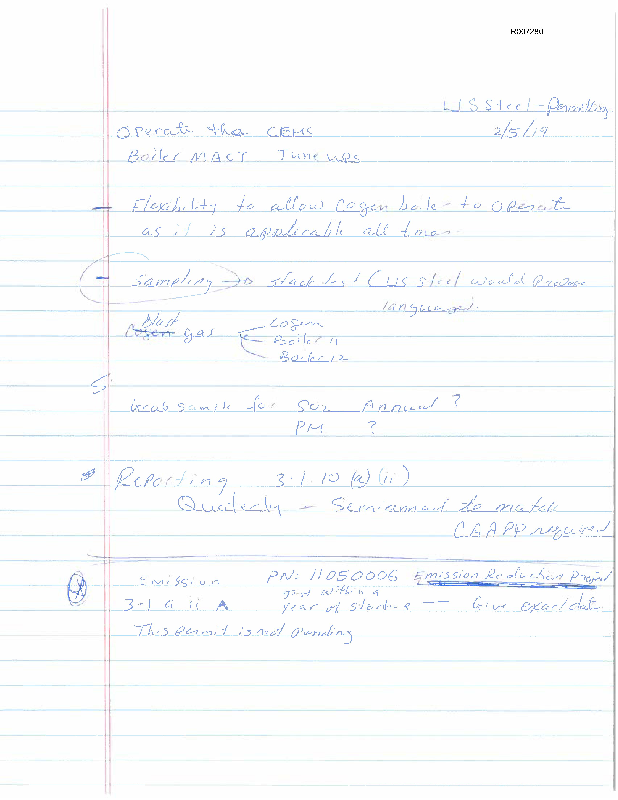 R007280
US Steel - Permitting
Operate the CEMS 2/5/19
Boiler MACT Tune ups
- Flexibility to allow Cogen boiler to operate
as it is applicable all times.
- Sampling → stack test (US Steel would propose
language).
Blast
Cogen gas
Cogen
Boiler 11
Boiler 12
Grab sample for SO2 Annual ?
PM ?
* Reporting 3.1.10 (a)(ii)
Quarterly - Semi-annual to match
CAAPP required
Emission PN: 11050006 Emission Reduction Project
within a
3-1 a ii A year of -- Give exact date
This permit is not